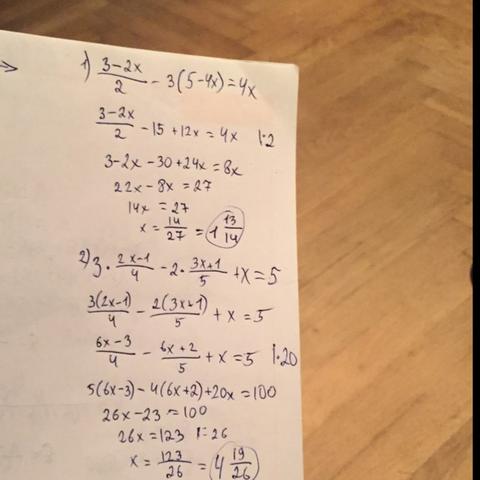 → 1) (3-2x)/2 - 3(5-4x) = 4x
(3-2x)/2 - 15 + 12x = 4x |·2
3-2x - 30 + 24x = 8x
22x - 8x = 27
14x = 27
x = 14/27 = 1 13/14
2) 3 · (2x-1)/4 - 2 · (3x+1)/5 + x = 5
3(2x-1)/4 - 2(3x+1)/5 + x = 5
(6x-3)/4 - (6x+2)/5 + x = 5 |·20
5(6x-3) - 4(6x+2) + 20x = 100
26x - 23 = 100
26x = 123 |:26
x = 123/26 = 4 19/26